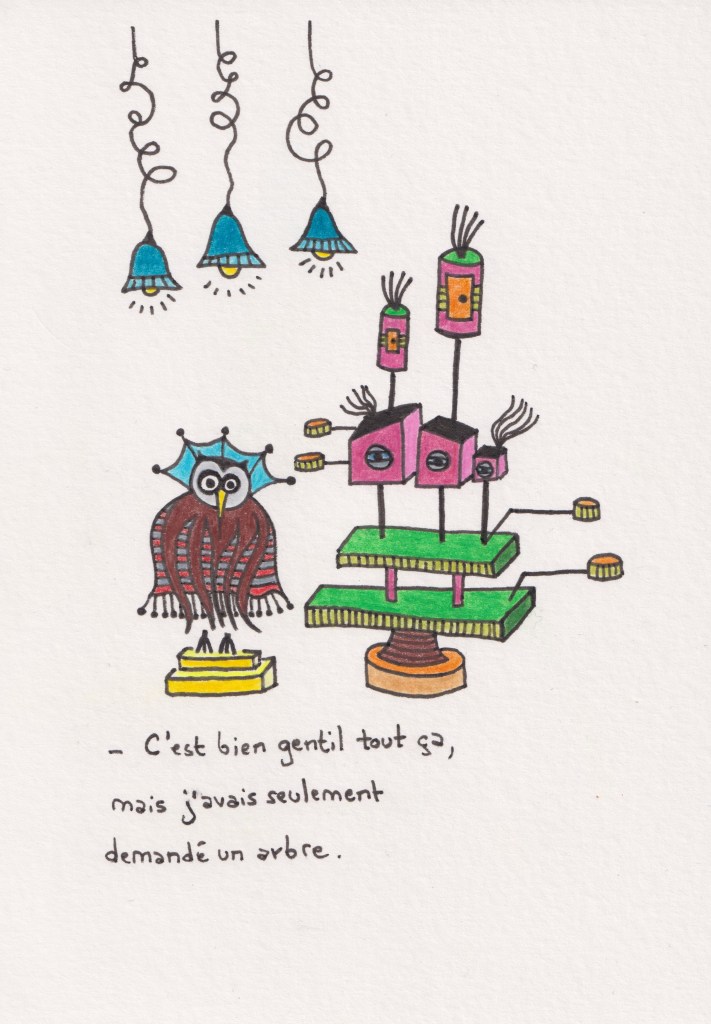 - C'est bien gentil tout ça,
mais j'avais seulement
demandé un arbre.